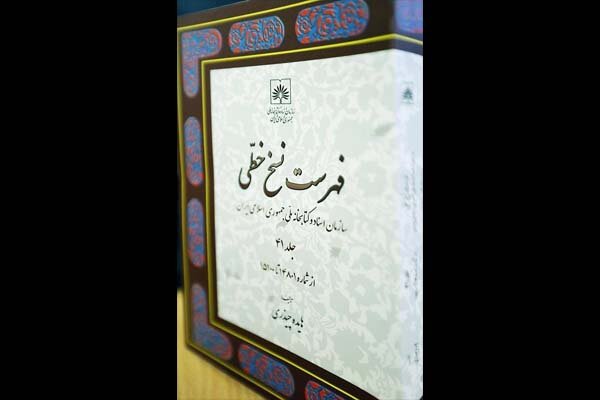 سازمان اسناد و کتابخانه ملی
جمهوری اسلامی ایران
فهرست نسخ خطّی
سازمان اسناد و کتابخانه ملّی جمهوری اسلامی ایران
جلد ۴۱
از شماره ۱۴۸۰۱ تا ۱۵۱۰۰
هایده چیذری